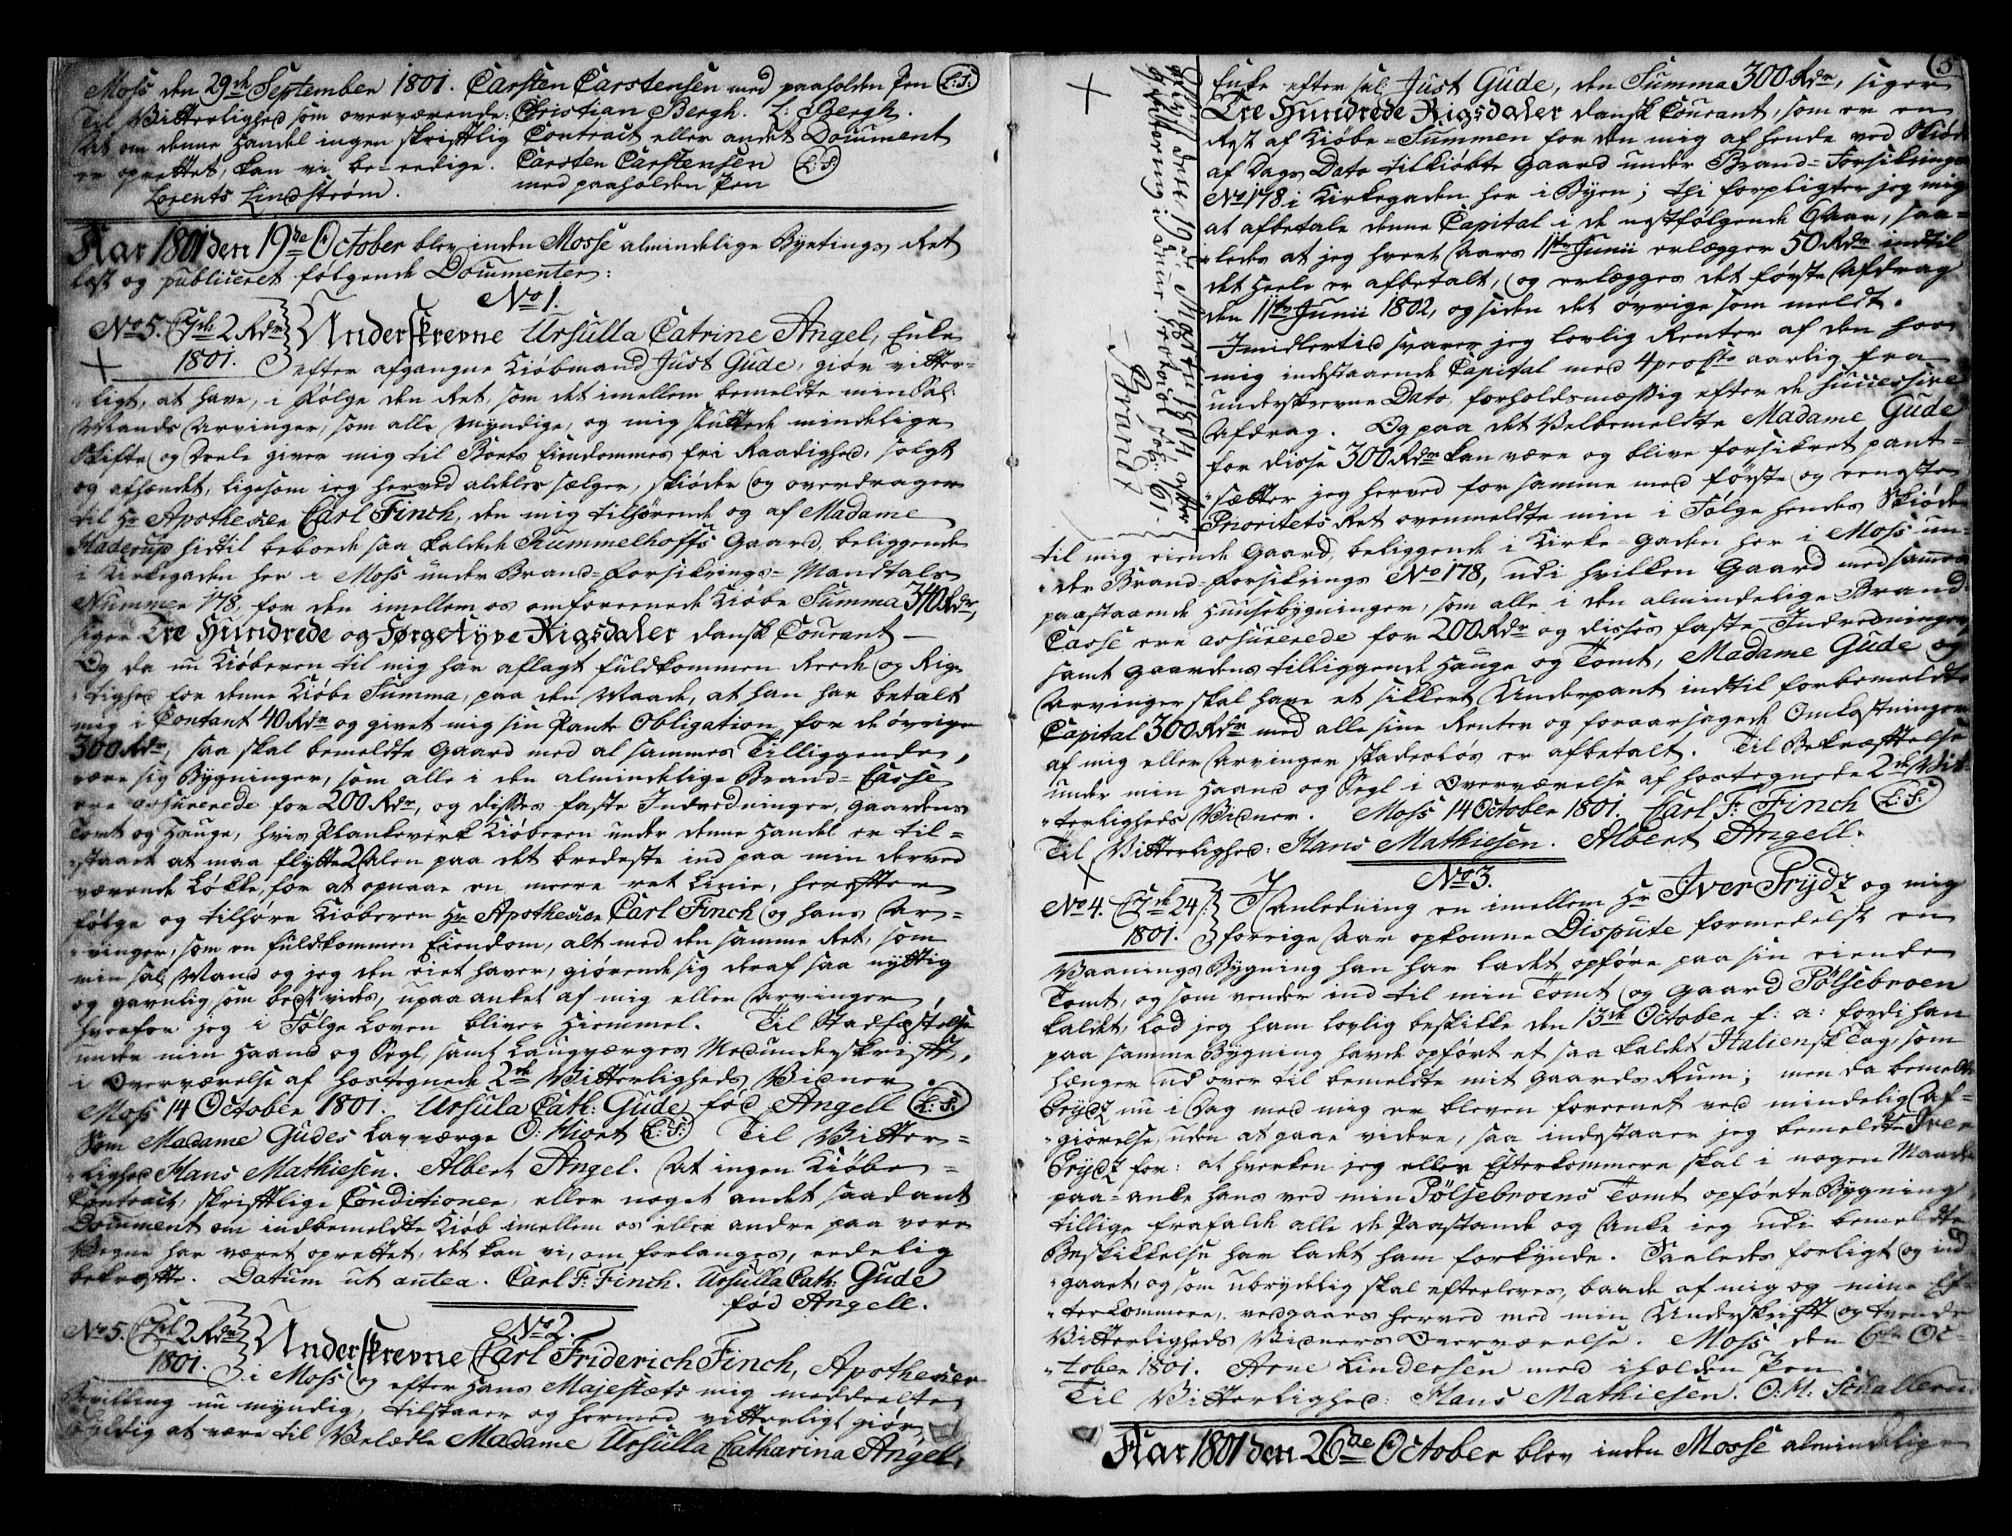 Moss den 29de September 1801. Carsten Carstensen med paaholden Pen (L:S:)
Til Vitterlighed som overværende: Christian Bergh. L: Bergh.
At om denne Handel ingen skriftlig Contract eller andet Document
er oprettet, kan vi be-eedige. Carsten Carstensen (L:S:)
Lorents Lindstrøm. med paaholden Pen
Aar 1801 den 19de October blev inden Mosse almindelige Byetings Ret
læst og publiceret følgende Documenter:
No 1.
No 5. 2 Rdr Underskrevne Ursulla Catrine Angel, Enke
1801. efter afgangne Kiøbmand Just Gude, giør vitter-
ligt, at have, i Følge den Ret, som det imellem bemeldte min Sal:
Mands Arvinger, som alle myndige, og mig sluttede mindelige
Skifte og Deele giver mig til Boets Eiendommes fri Raadighed, solgt
og afhændet, ligesom jeg herved aldeles sælger, skiøder og overdrager
til Hr Apotheker Carl Finch, den mig tilhørende og af Madame
Haderup hidtil beboede saa kaldede Rummelhoffs Gaard, beliggende
i Kirkegaden her i Moss under Brand-Forsikrings-Mandtals
Nummer 178, for den imellem os omforeenede Kiøbe Summa 340 Rdr,
siger Tre Hundrede og Førgetyve Rigsdaler dansk Courant —
Og da nu Kiøberen til mig har aflagt fuldkommen Reede og Rig-
tighed for denne Kiøbe Summa, paa den Maade, at han har betalt
mig i Contant 40 Rdr og givet mig sin Pante Obligation for de øvrige
300 Rdr, saa skal bemeldte Gaard med al sammes Tilliggender,
være sig Bygninger, som alle i den almindelige Brand-Casse
ere assurerede for 200 Rdr, og disses faste Indredninger, Gaardens
Tomt og Hauge, hvis Plankeverk Kiøberen under denne Handel er til-
staaet at maa flytte 2 Alen paa det bredeste ind paa min derved
værende Løkke, for at opnaae en meere ret Linie, herefter
følge og tilhøre Kiøberen Hr Apotheker Carl Finch og hans Ar-
vinger, som en fuldkommen Eiendom, alt med den samme Ret, som
min sal: Mand og jeg den eiet haver, giørende sig deraf saa nyttig
og gavnlig, som best vides, upaaanket af mig eller Arvinger,
hvorfor jeg i Følge Loven bliver Hiemmel. Til Stadfæstelse
under min Haand og Segl, samt Laugværges Medunderskrift,
i Overværelse af hostegnede 2de Vitterligheds Vidner.
Moss 14 October 1801. Ursula Cath: Gude fød Angell (L:S:)
Som Madame Gudes Lavværge O: Hiort (L:S:) Til Vitter-
lighed Hans Mathiesen. Albert Angel. At ingen Kiøbe-
Contract, skriftlige Conditioner, eller noget andet saadant
Document om indbemeldte Kiøb imellem os eller andre paa vore
Vegne har været oprettet, det kan vi, om forlanges, eedelig
bekræfte. Datum ut antea. Carl F: Finch. Ursulla Cath: Gude
fød Angell.
No 2.
No 5. 2 Rdr Underskrevne Carl Friderich Finch, Apotheker
1801. i Moss og efter Hans Majestæts mig meddeelte
Bevilling nu myndig, tilstaaer og hermed vitterligt giør,
skyldig at være til Velædle Madame Ursulla Catharina Angel,
3
Enke efter sal: Just Gude, den Summa 300 Rdr, siger
Tre Hundrede Rigsdaler dansk Courant, som er en
Rest af Kiøbe-Summen for den mig af hende ved Skiøde
af Dags Dato tilkiøbte Gaard under Brand-Forsikrings
No 178 i Kirkegaden her i Byen; thi forpligter jeg mig
at afbetale denne Capital i de nestfølgende 6 Aar, saa-
leds at jeg hvert Aars 11te Junii erlægger 50 Rdr indtil
det heele er afbetalt, og erlægges det første Afdrag
den 11te Junii 1802, og siden det øvrige som meldt.
Imidlertid svarer jeg lovlig Renter af den hos
mig indestaaende Capital med 4 procto aarlig fra
underskrevne Dato, forholdsmæssig efter de successive
Afdrag. Og paa det Velbemeldte Madame Gude
for disse 300 Rdr kan være og blive forsikret pant-
sætter jeg herved for samme med første og eengste
Prioritets Ret ovenmeldte min i Følge hendes Skiøde
til mig eiende Gaard beliggende i Kirke-Gaden her i Moss un-
der Brand-Forsikrings No 178, udi hvilken Gaard med sammes
paastaaende Huusebygninger, som alle i den almindelige Brand-
Casse ere assurerede for 200 Rdr og disses faste Indredninger,
samt Gaardens tilliggende Hauge og Tomt, Madame Gude og
Arvinger skal have et sikkert Underpant indtil forbemeldte
Capital 300 Rdr med alle sine Renter og foraarsagede Omkostninger
af mig eller Arvinger skadesløs er afbetalt. Til Bekræftelse
under min Haand og Segl i Overværelse af hostegnede 2de Vit-
terligheds Vidner. Moss 14 October 1801. Carl F: Finch (L:S:)
Til Vitterlighed: Hans Mathiesen. Albert Angell.
qvit: den 19de Martii 1804 efter
qvitering i Protocol Fol: 61.
Brandt
No 3.
No 4. 24 s: I Anledning en imellem Hr Iver Prydz og mig
1801. forrige Aar opkomne Dispute formedelst en
Vaanings Bygning han har ladet opføre paa sin eiende
Tomt, og som vender ind til min Tomt og Gaard Pølsebroen
kaldet, lod jeg ham lovlig beskikke den 13de October f: a: fordi han
paa samme Bygning havde opført et saa kaldet Italiensk Tag, som
hænger ud over til bemeldte mit Gaards Rum; men da bemeldte
Prydz nu i Dag med mig er bleven foreenet ved mindelig Af-
giørelse, uden at gaae videre, saa indestaaer jeg bemeldte Iver
Prydz for: at hverken jeg eller Efterkommere skal i nogen Maade
paa-anke hans ved min Pølsebroens Tomt opførte Bygning
tillige frafalde alle de Paastande og Anke jeg udi bemeldte
Beskikkelse har ladet ham forkynde. Saaledes forligt og ind-
gaaet, og som ubrydelig skal efterleves, baade af mig og mine Ef-
terkommere, vedgaaes herved med min Underskrift og tvende
Vitterligheds Vidners Overværelse. Moss den 6te Oc-
tober 1801. Arne Lindersen med iholden Pen.
Til Vitterlighed: Hans Mathiesen. O: M: Schallerud
Aar 1801 den 26de October blev inden Mosse almindelige